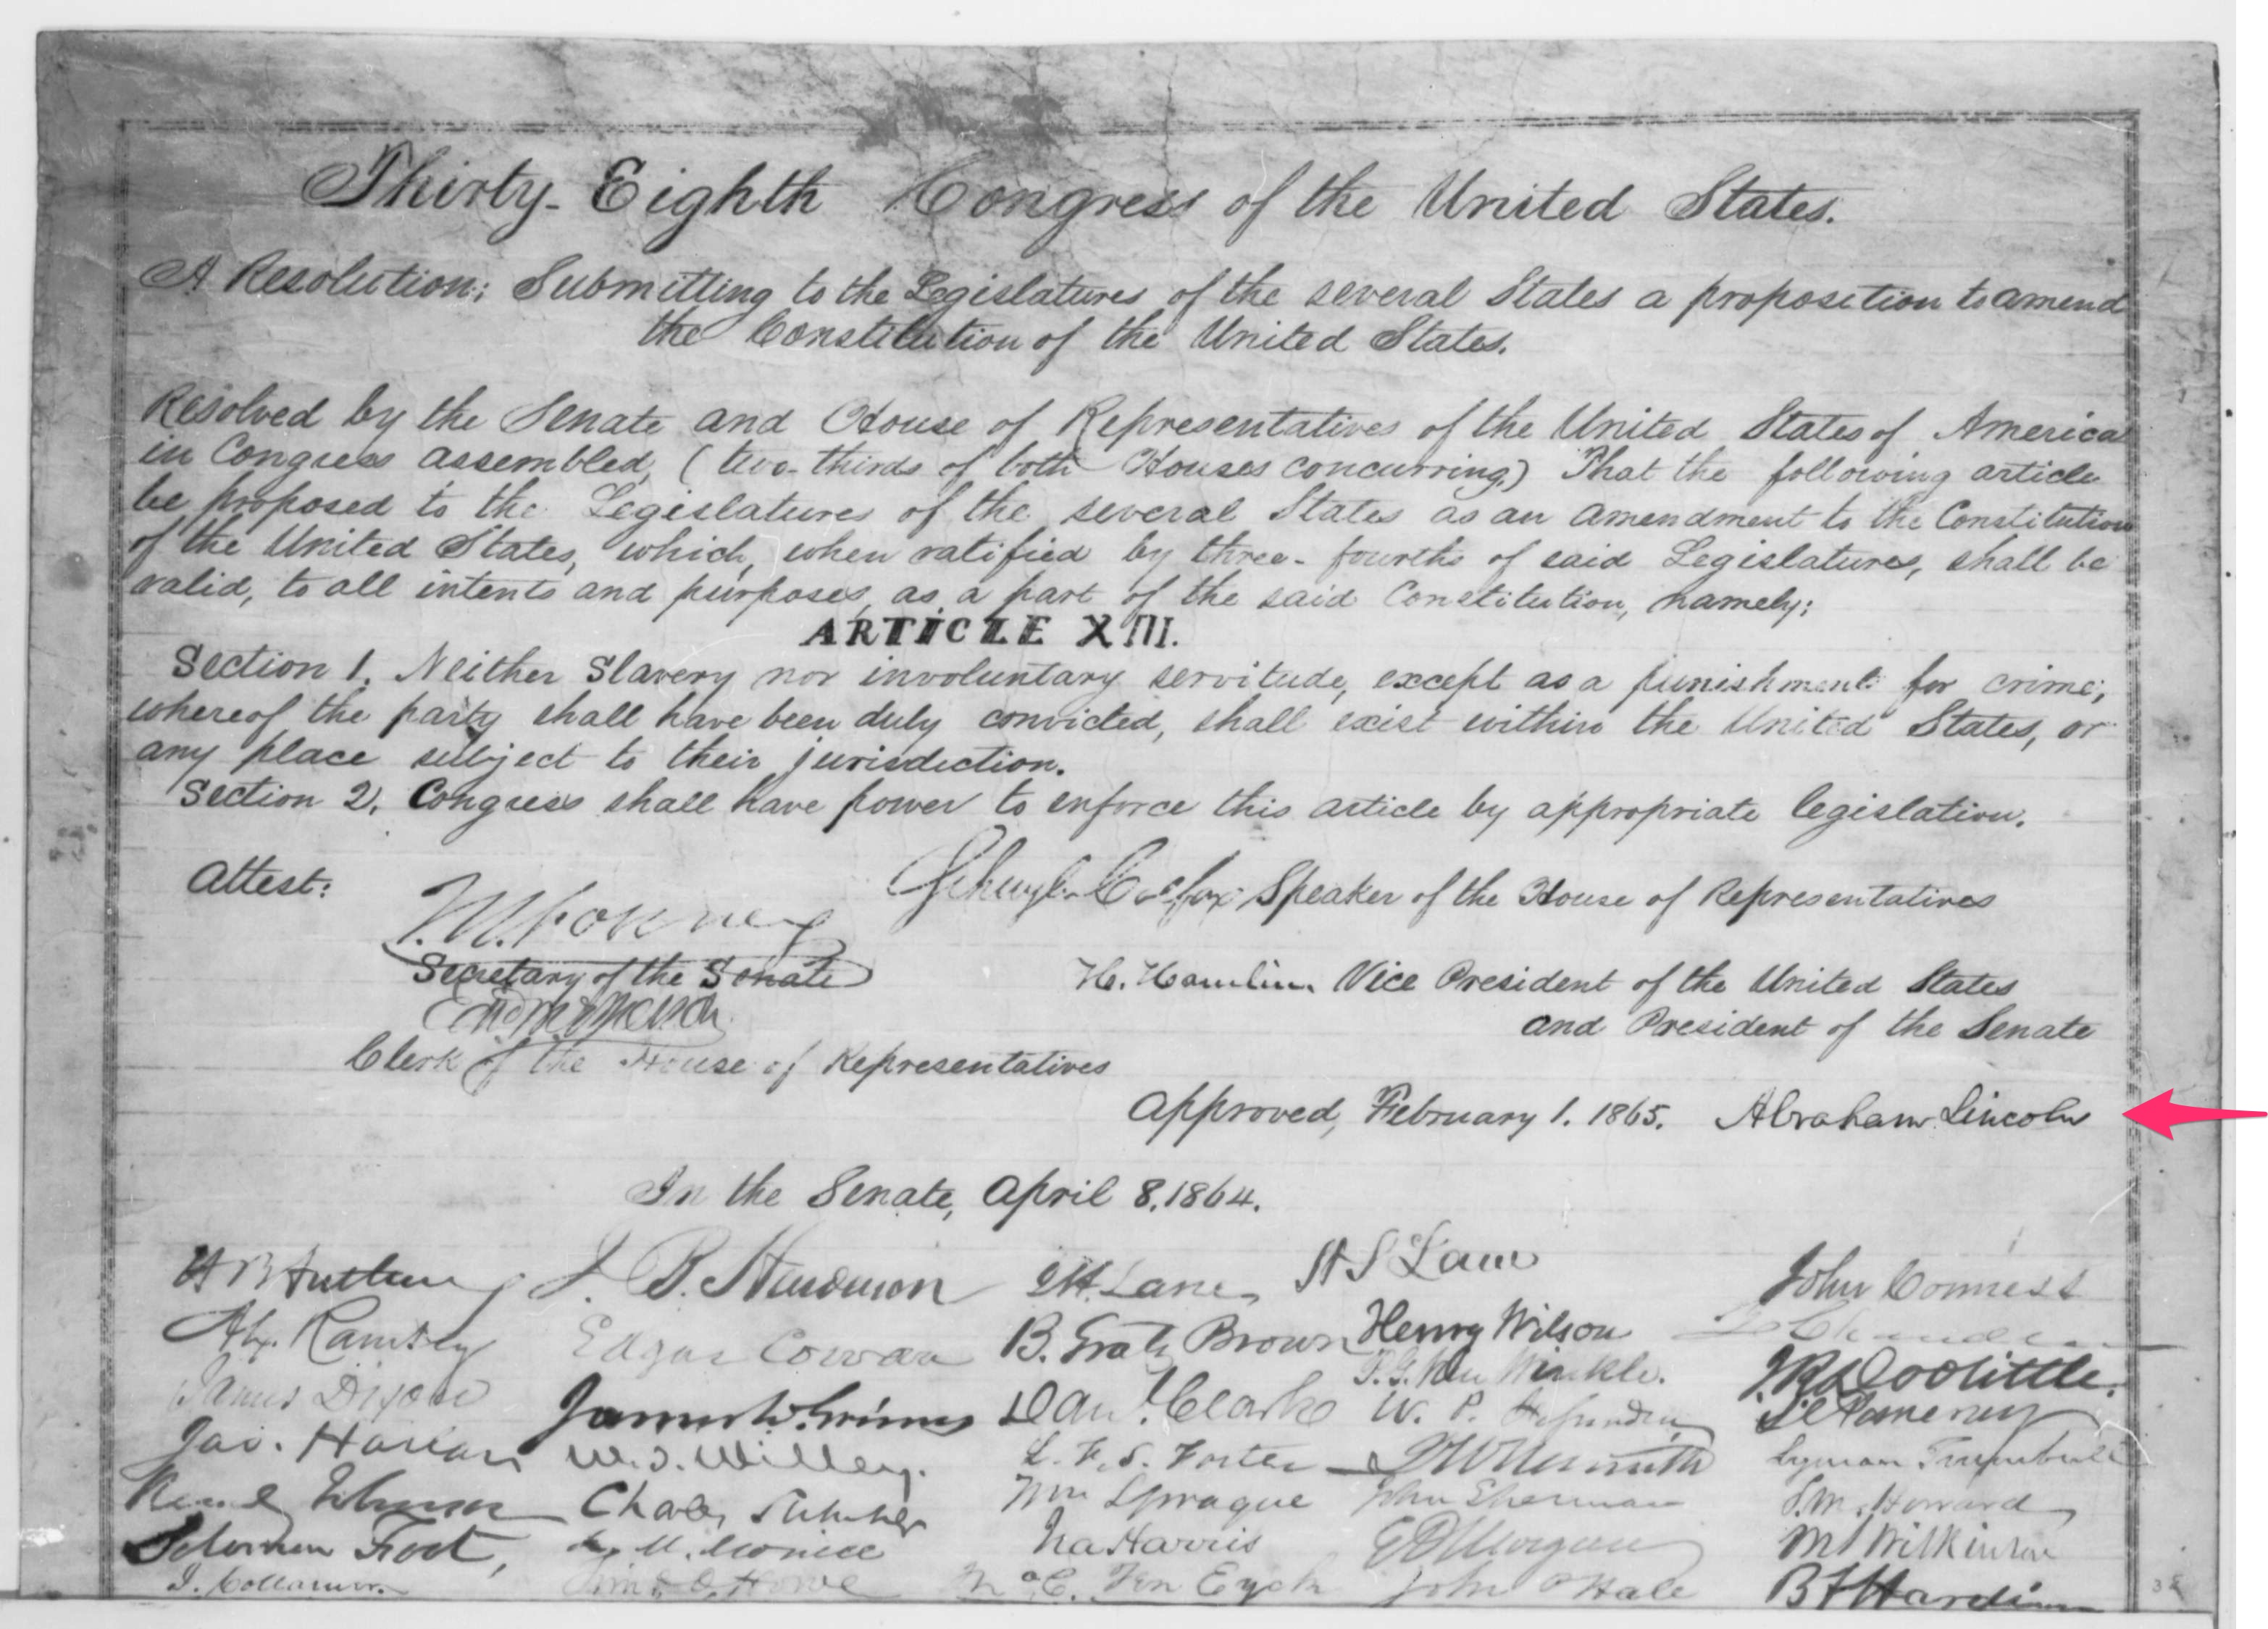 Thirty-Eighth Congress of the United States.
A Resolution; Submitting to the Legislatures of the several States a proposition to amend
the Constitution of the United States.
Resolved by the Senate and House of Representatives of the United States of America
in Congress assembled, (two-thirds of both Houses concurring,) That the following article
be proposed to the Legislatures of the several States as an amendment to the Constitution
of the United States, which, when ratified by three-fourths of said Legislatures, shall be
valid, to all intents and purposes, as a part of the said Constitution, namely:
ARTICLE XIII.
Section 1. Neither Slavery nor involuntary servitude, except as a punishment for crime,
whereof the party shall have been duly convicted, shall exist within the United States, or
any place subject to their jurisdiction.
Section 2. Congress shall have power to enforce this article by appropriate legislation.
Attest:
J.W. Forney
Secretary of the Senate
Clerk of the House of Representatives
Schuyler Colfax Speaker of the House of Representatives
H. Hamlin. Vice President of the United States
and President of the Senate
Approved, February 1. 1865. Abraham Lincoln
In the Senate, April 8, 1864.
J. B. Henderson J H. Lane H S Lane John Conness
Alex. Ramsey Edgar Cowan B. Gratz Brown Henry Wilson
James Dixon James W. Grimes Dan. Clark P. G. Van Winkle. J. R. Doolittle.
Jas. Harlan W. T. Willey. L. F. S. Foster W. P. Fessenden S C Pomeroy
Charles Sumner Wm Sprague J W Nesmith Lyman Trumbull
Solomon Foot, Ira Harris John Sherman J. M. Howard
J. Collamer. Timo. O. Howe Jno C. Ten Eyck E D Morgan M S Wilkinson
John P Hale B F Harding